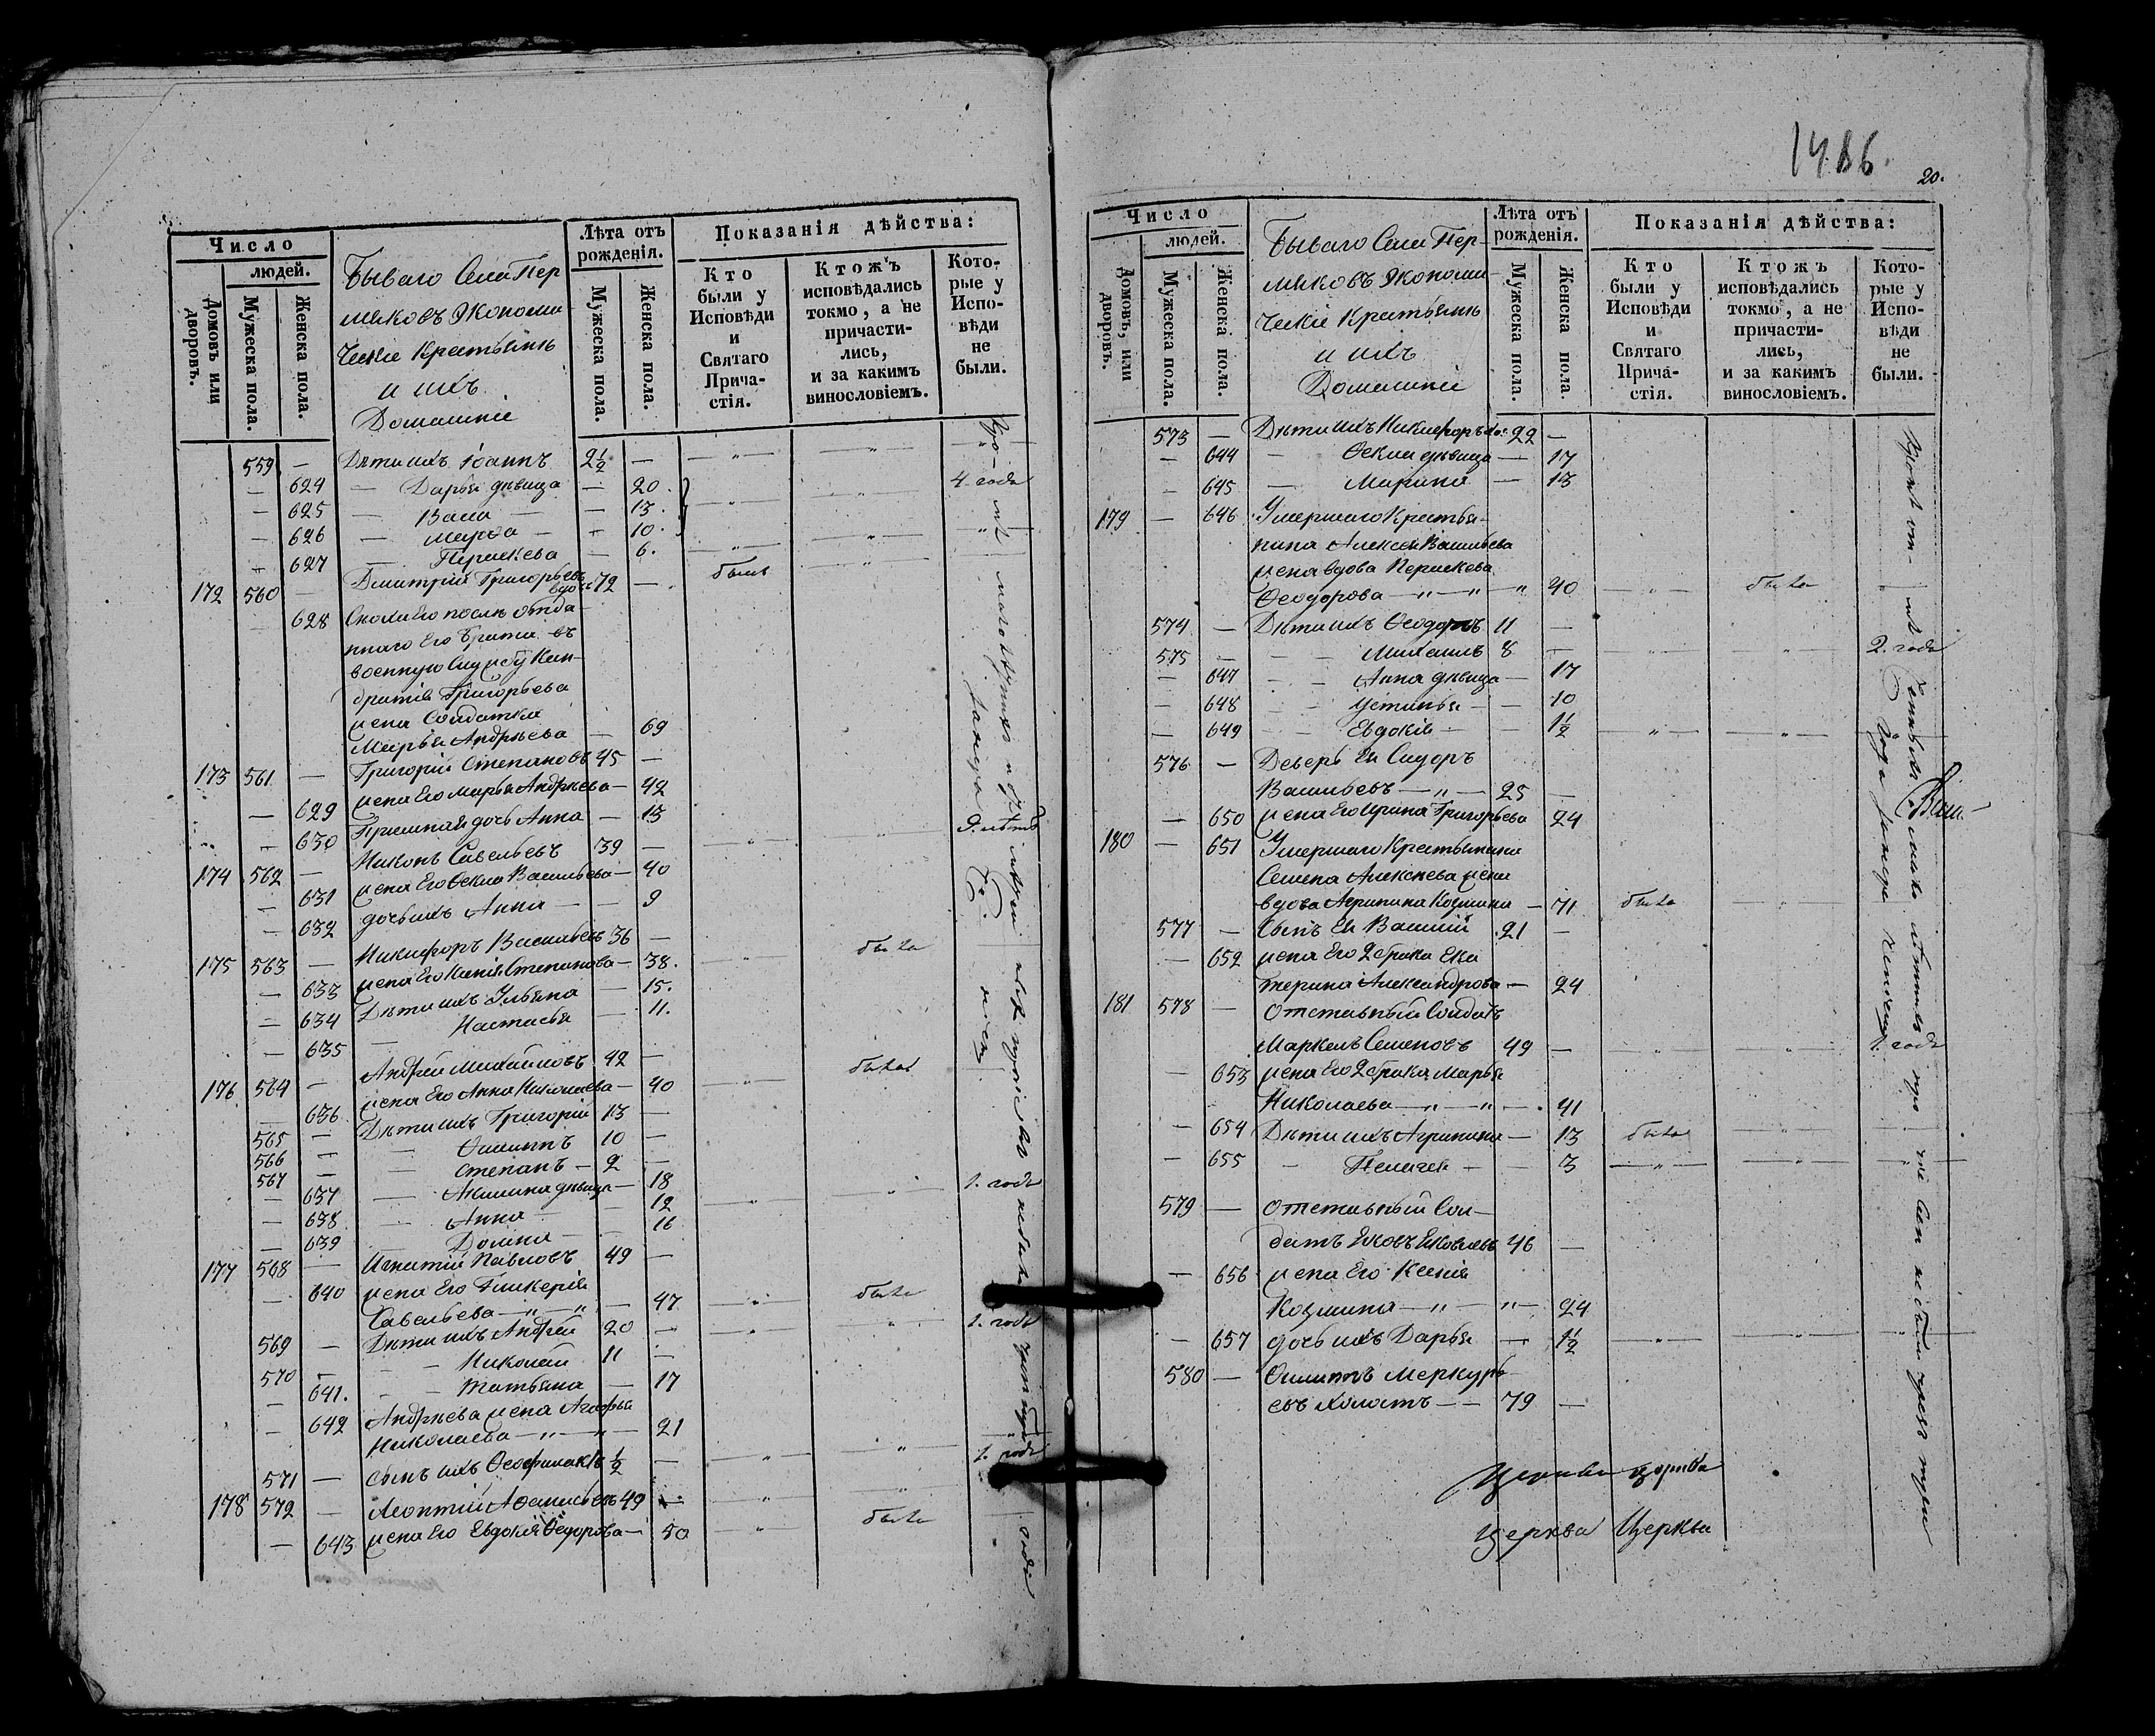 Число
людей.
Домовъ или дворовъ.
Мужеска пола.
Женска пола.
Бываго Села Пер
мяковъ Экономи
ческіе Крестьяне
и ихъ
Домашніе
Лѣта отъ
рожденія.
Мужеска пола.
Женска пола.
Показанія дѣйства:
Кто
были у
Исповѣди
и
Святаго
Прича-
стія.
Ктожъ
исповѣдались
токмо, а не
причасти-
лись,
и за какимъ
винословіемъ.
Кото-
рые у
Испо-
вѣди
не
были.
559 — Дѣти ихъ Іоаннъ 2½ — — " — — " — — " —
— 624 — Дарья дѣвица — 20. " " 4. года
— 625 — Васса — — 13.
— 626 — Марѳа — — 10.
— 627 — Параскева — 6. — " — — " — — " —
172 560 — Дмитрій Григорьевъ вдовъ 72 — былъ "
— 628 Сноха Его послѣ отда
ннаго Его брата въ
военную Службу Кин-
дратія Григорьева
жена Солдатка
Марья Андреева — 69
173 561 — Григорій Степановъ 45 —
— 629 жена Его Марья Андреева — 42
— 630 Приемная дочь Анна — 13
174 562 — Никонъ Савельевъ 39 — " " 9. лѣтъ
— 631 жена Его Ѳекла Васильева — 40
— 632 дочь ихъ Анна — — 9
175 563 — Никифоръ Васильевъ 36 —
— 633 жена Его Ксенія Степанова — 38. " была
— 634 Дѣти ихъ Ульяна — 15.
— 635 — Настасья — 11.
176 564 — Андрей Михайловъ 42 —
— 636 жена Его Анна Николаева — 40 "
565 — Дѣти ихъ Григорій 13 —
566 — — Филиппъ 10 —
567 — — Степанъ — 2 —
— 637 — Акилина дѣвица — 18 " " 1. года
— 638 — Анна — — 12
— 639 — Домна — — 16
177 568 — Игнатій Павловъ 49 —
— 640 жена Его Гликерія
Савельева — " — " — 47 " была
569 — Дѣти ихъ Андрей 20 — " " 1. года
570 — — Николай 11 —
— 641. — Татьяна — 17
— 642 Андреева жена Агафья
Николаева — " — " — 21 " " 1. года
571 — сынъ ихъ Ѳеофилактъ ½ — — " — — " — — " —
178 572 — Леонтій Аѳанасьевъ 49 — " "
— 643 жена Его Евдокія Ѳедорова — 50 " была
1486.
20.
Число
людей.
Домовъ, или дворовъ.
Мужеска пола.
Женска пола.
Бываго Села Пер-
мяковъ Экономи
ческіе Крестьяне
и ихъ
Домашніе
Лѣта отъ
рожденія.
Мужеска пола.
Женска пола.
Показанія дѣйства:
Кто
были у
Исповѣди
и
Святаго
Прича-
стія.
Ктожъ
исповѣдались
токмо, а не
причасти-
лись,
и за какимъ
винословіемъ.
Кото-
рые у
Испо-
вѣди
не
были.
573 — Дѣти ихъ Никифоръ хо: 22 —
— 644 — Ѳекла дѣвица — 17
— 645 — Марина — 13
179 — 646 Умершаго Крестья-
нина Алексея Васильева
жена вдова Параскева
Ѳеодорова — " — " — " 40 — " — была
574 — Дѣти ихъ Ѳеодоръ 11 —
575 — — Михаилъ 8 — " " 2. года
— 647 — Анна дѣвица — 17
— 648 — Устинья — 10
— 649 — Евдокія — 1½ — " — — " —
576 — Деверь Ея Сидоръ
Васильевъ — " — 25 —
— 650 жена Его Ирина Григорьева 24
180 — 651 Умершаго Крестьянина
Семена Алексеева жена
вдова Агрипина Козмина — 71 была "
577 — Сынъ Ея Василій 21 —
— 652 жена Его 2 брака Ека
терина Александрова — 24
181 578 — Отставный Солдатъ
Маркелъ Семеновъ 49 — " " 1. года
— 653 жена Его 2 брака Марья
Николаева — " — " — 41
— 654 Дѣти ихъ Агрипина — 13 была "
— 655 — Пелагея — — 3 — " — — " — — " —
579 — Отставный Сол-
датъ Яковъ Яковлевъ 46 —
— 656 жена Его Ксенія
Козмина — " — " — 24
— 657 дочь ихъ Дарья — 1½ — " — — " — — " —
580 — Филиппъ Меркурь
евъ холостъ — — 79 —
Церква Церква